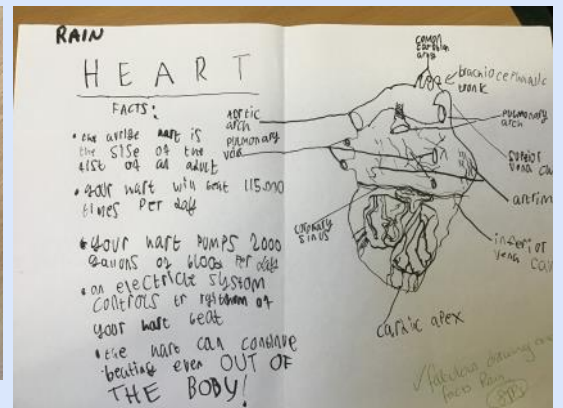 RAIN
HEART
FACTS:
• the avrige hart is
the sise of the
fist of an adult
• your hart will beat 115.000
times Per day
• your hart PUMPS 2000
gallons of blood Per day
• an electricle system
controls
your hart beat
• the hart can continue
beating even OUT OF
THE BODY!
brachiocephalic
trunk
Aortic
arch
pulmonary
pulmonary
arch
vena
coronary
sinus
inferior
vena
apex
fabulous drawing and
facts Rain